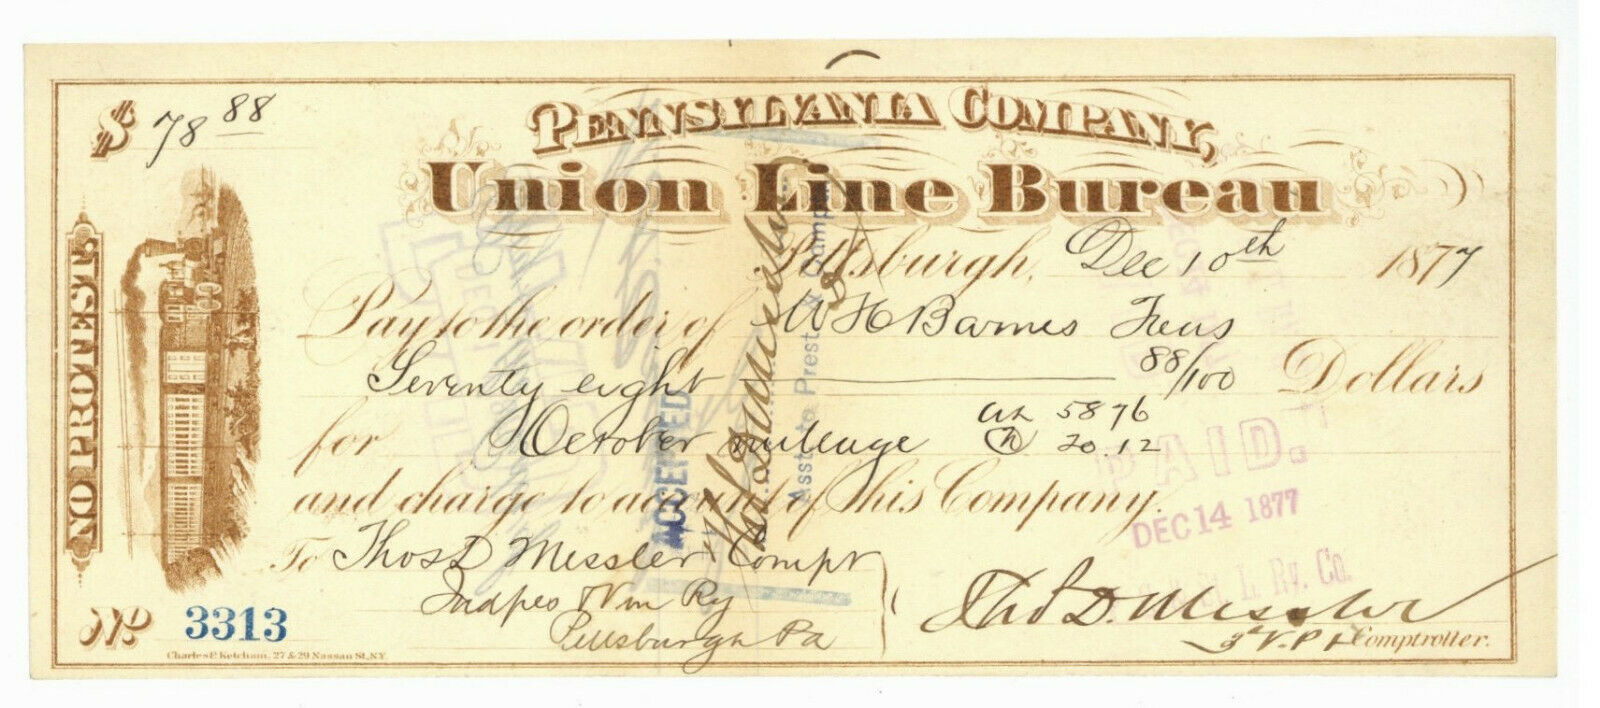 $ 78 88
PENNSYLVANIA COMPANY,
Union Line Bureau
Pittsburgh, Dec 10th 1877
Pay to the order of W H Barnes Treas
Seventy eight 88/100 Dollars
for October mileage 5876
20.12
and charge to account of this Company.
To Thos D Messler Compt
Indpls & Vin Ry
Pittsburgh Pa
Thos D. Messler
3d V.P. & Comptroller.
NO PROTEST.
No 3313
Charles E Ketcham, 27 & 29 Nassau St., N.Y.
ACCEPTED
Asst. to Prest. & Comp
PAID.
DEC 14 1877
L Ry. Co.